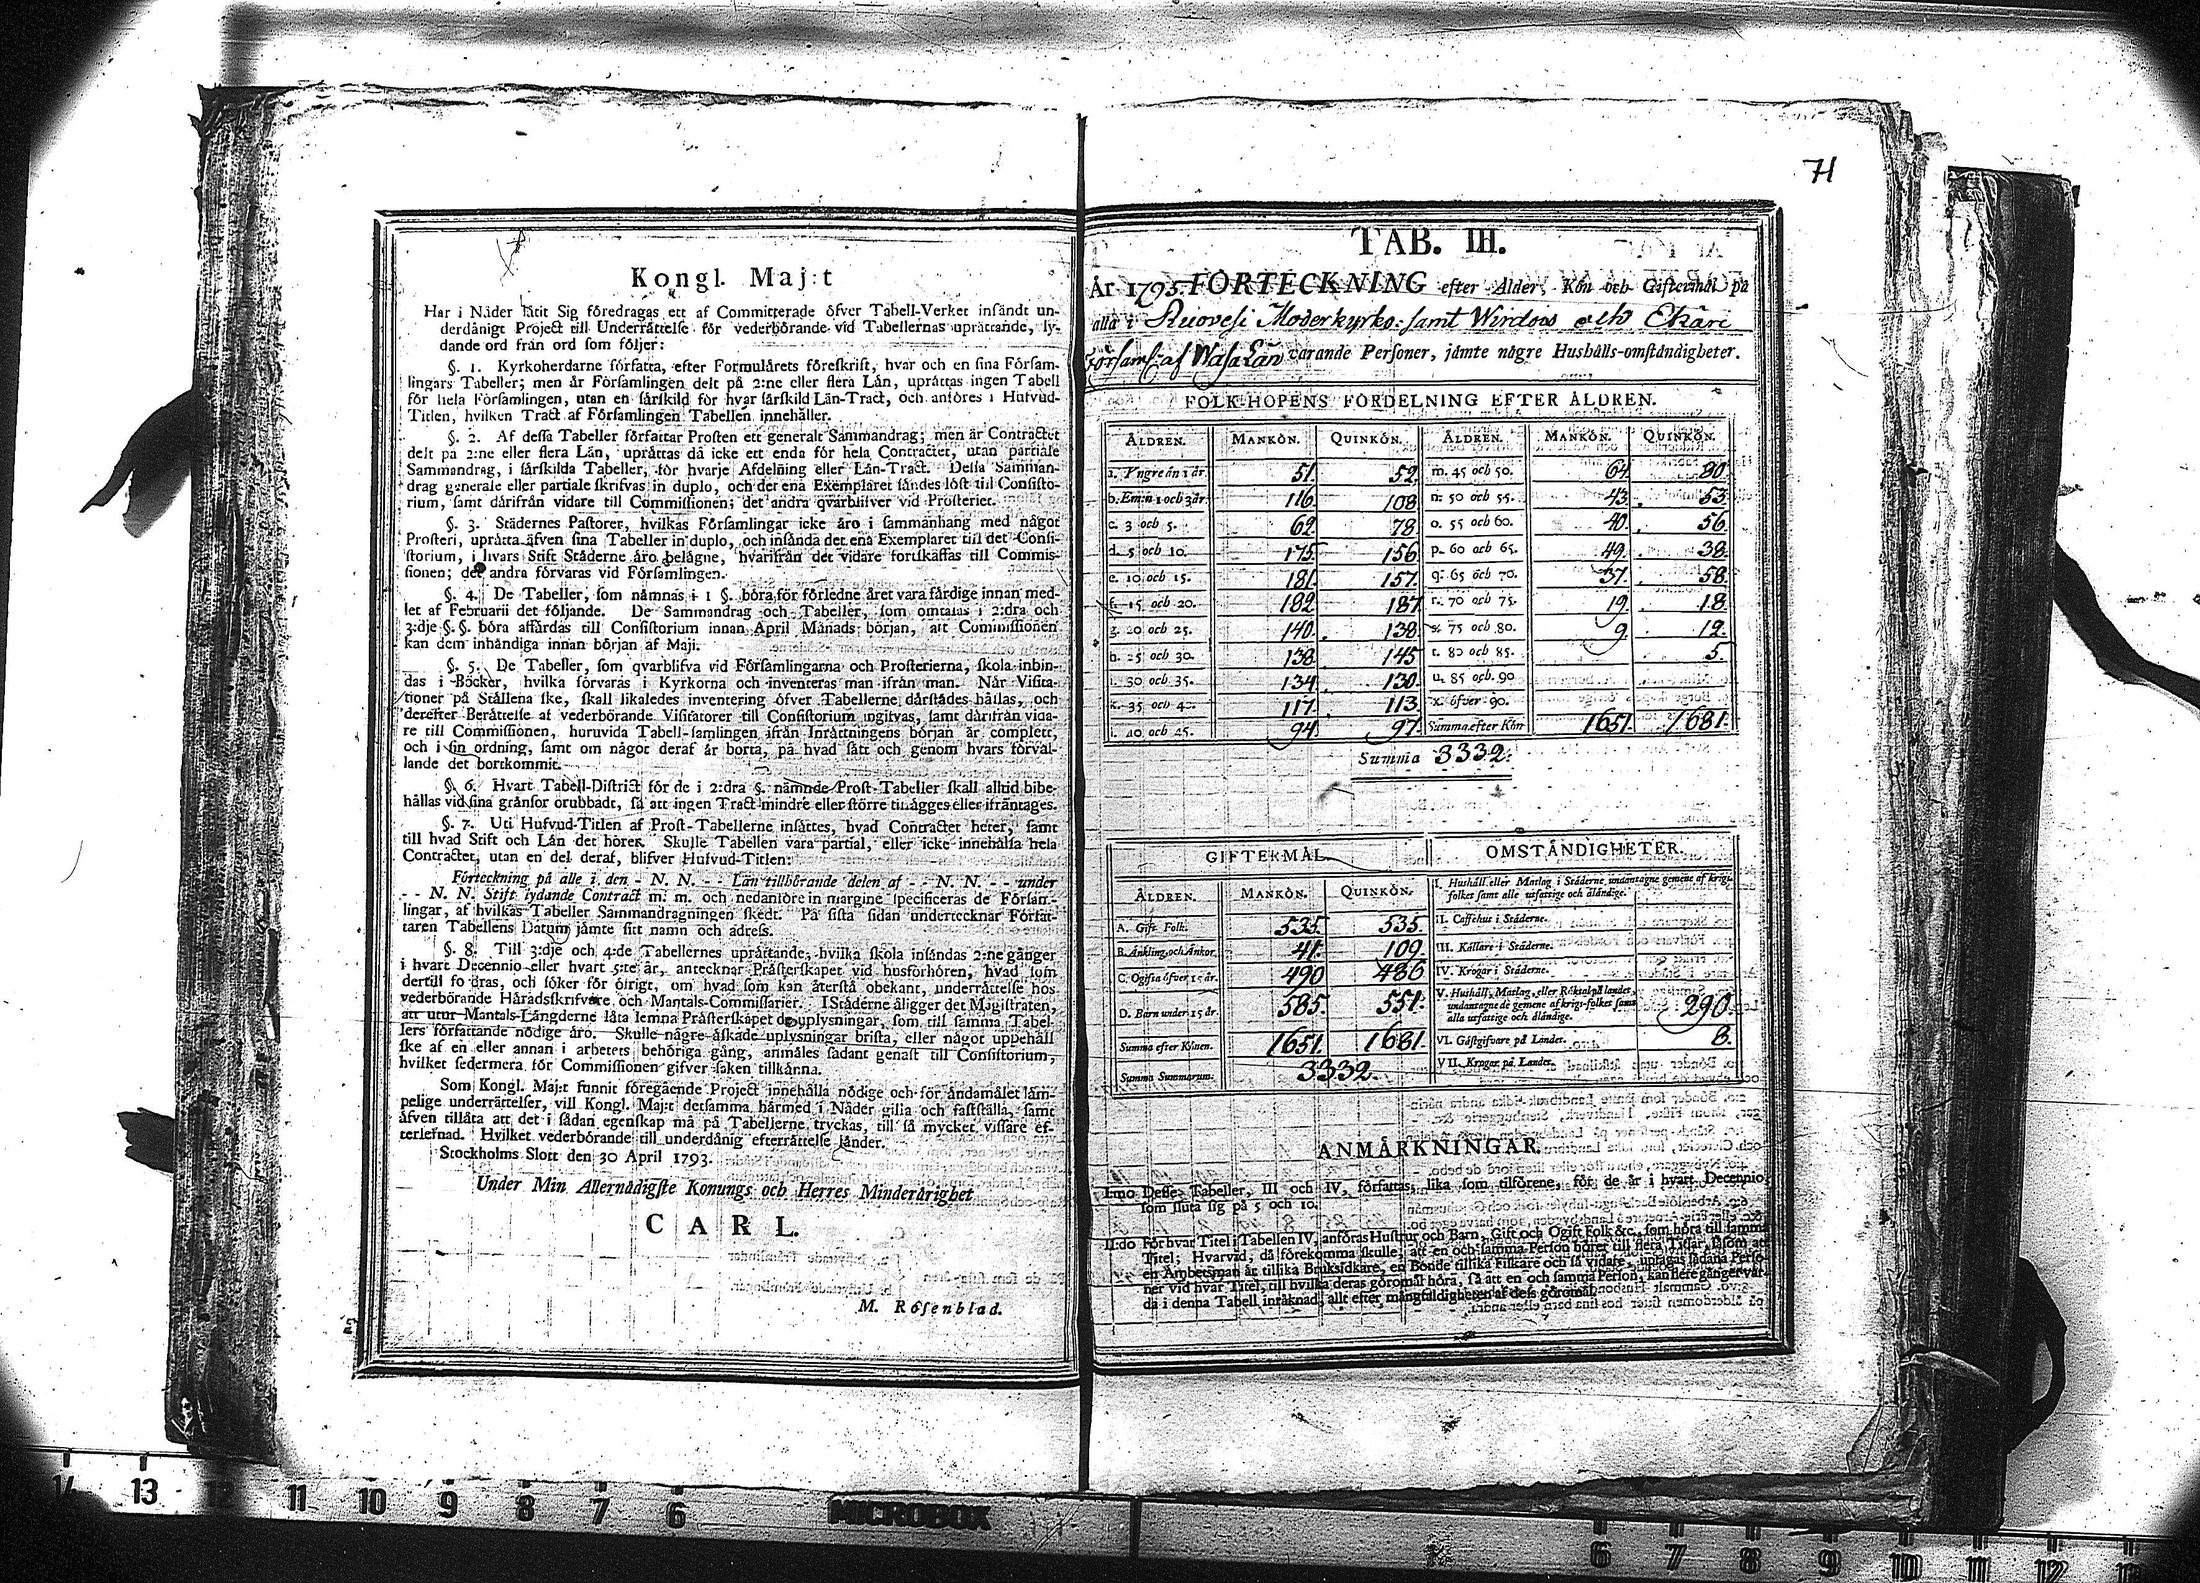 Kongl. Maj:t
Har i Nåder låtit Sig föredragas ett af Committerade öfver Tabell-Verket insändt un-
derdånigt Project till Underrättelse för vederbörande vid Tabellernas upprättande, ly-
dande ord från ord som följer:
§. 1. Kyrkoherdarne författa, efter Formulärets föreskrift, hvar och en sina Försam-
lingars Tabeller; men är Församlingen delt på 2:ne eller flera Län, upråttas ingen Tabell
för hela Församlingen, utan en särskild för hvar särskild Län-Tract, och anföres i Hufvud-
Titlen, hvilken Tract af Församlingen Tabellen innehåller.
§. 2. Af dessa Tabeller författar Prosten ett generalt Sammandrag; men är Contractet
delt på 2:ne eller flera Län, upråttas då icke ett enda för hela Contractet, utan partiale
Sammandrag, i särskilda Tabeller, för hvarje Afdelning eller Län-Tract. Dessa Samman-
drag generale eller partiale skrifvas in duplo, och det ena Exemplaret sändes löst till Consisto-
rium, samt dårifrån vidare till Commissionen; det andra qvarblifver vid Prosteriet.
§. 3. Städernes Pastorer, hvilkas Församlingar icke äro i sammanhang med något
Prosteri, upråtta äfven sina Tabeller in duplo, och insända det ena Exemplaret till det Consi-
storium, i hvars Stift Städerne äro belägne, hvarifrån det vidare fortskaffas till Commis-
sionen; det andra förvaras vid Församlingen.
§. 4. De Tabeller, som nämnas i 1 §. böra för förledne året vara färdige innan med-
let af Februarii det följande. De Sammandrag och Tabeller, som omtalas i 2:dra och
3:dje §. §. böra affärdas till Consistorium innan April Månads början, att Commissionen
kan dem inhändiga innan början af Maji.
§. 5. De Tabeller, som qvarblifva vid Församlingarna och Prosterierna, skola inbin-
das i Böcker, hvilka förvaras i Kyrkorna och inventeras man ifrån man. När Visita-
tioner på Ställena ske, skall likaledes inventering öfver Tabellerne därstädes hållas, och
derefter Berättelse af vederbörande Visitatorer till Consistorium ingifvas, samt därifrån vida-
re till Commissionen, huruvida Tabell-samlingen ifrån Inrättningens början är complett,
och i sin ordning, samt om något deraf är borta, på hvad sätt och genom hvars förvål-
lande det bortkommit.
§. 6. Hvart Tabell-District för de i 2:dra §. nämnde Prost-Tabeller skall alltid bibe-
hållas vid sina gränsor orubbadt, så att ingen Tract mindre eller större tillägges eller ifråntages.
§. 7. Uti Hufvud-Titlen af Prost-Tabellerne insättes, hvad Contractet heter, samt
till hvad Stift och Län det hörer. Skulle Tabellen vara partial, eller icke innehålla hela
Contractet, utan en del deraf, blifver Hufvud-Titlen:
Förteckning på alle i den - N. N. - - Län tillhörande delen af - - N. N. - - under
- - N. N. Stift lydande Contract m. m. och nedanföre in margine specificeras de Försam-
lingar, af hvilkas Tabeller Sammandragningen skedt. På sista sidan undertecknar Förfat-
taren Tabellens Datum jämte sitt namn och adress.
§. 8. Till 3:dje och 4:de Tabellernes upråttande, hvilka skola insändas 2:ne gånger
i hvart Decennio eller hvart 5:te år, antecknar Prästerskapet vid husförhören, hvad som
dertill fordras, och söker för öfrigt, om hvad som kan återstå obekant, underrättelse hos
vederbörande Häradsskrifvare och Mantals-Commissarier. I Städerne åligger det Magistraten,
att utur Mantals-Längderne låta lemna Prästerskapet de upplysningar, som till samma Tabel-
lers författande nödige äro. Skulle någre äskade uplysningar brista, eller något uppehåll
ske af en eller annan i arbetets behöriga gång, anmäles sådant genast till Consistorium,
hvilket sedermera för Commissionen gifver saken tillkänna.
Som Kongl. Maj:t funnit föregående Project innehålla nödige och för ändamålet läm-
pelige underrättelser, vill Kongl. Maj:t detsamma härmed i Nåder gilla och fastställa, samt
äfven tillåta att det i sådan egenskap må på Tabellerne tryckas, till så mycket vissare ef-
terlefnad. Hvilket vederbörande till underdånig efterrättelse länder.
Stockholms Slott den 30 April 1793.
Under Min Allernådigste Konungs och Herres Minderårighet
CARL.
M. Rosenblad.
71
TAB. III.
År 1795. FÖRTECKNING efter Ålder, Kön och Giftermål på
alla i Ruovesi Moderkyrko: samt Wirdois och Ekäri
Församl: af Wasa Län varande Personer, jämte någre Hushålls-omständigheter.
FOLK-HOPENS FÖRDELNING EFTER ÅLDREN.
ÅLDREN. MANKÖN. QUINKÖN. ÅLDREN. MANKÖN. QUINKÖN.
a. Yngre än 1 år 51. 52. m. 45 och 50. 64. 80.
b. Em:n 1 och 3 år 116. 108 n. 50 och 55. 43. 53.
c. 3 och 5. 62. 78 o. 55 och 60. 40. 56.
d. 5 och 10. 175. 156 p. 60 och 65. 49. 38.
e. 10 och 15. 181. 157. q. 65 och 70. 37. 58.
f. 15 och 20. 182. 187. r. 70 och 75. 19. 18.
g. 20 och 25. 140. 138. s. 75 och 80. 9. 12.
h. 25 och 30. 138. 145 t. 80 och 85. 5.
i. 30 och 35. 134. 130. u. 85 och 90
k. 35 och 40. 117. 113. x. öfver 90.
l. 40 och 45. 94. 97. Summa efter Kön 1651. 1681.
Summa 3332.
GIFTERMÅL. OMSTÄNDIGHETER.
ÅLDREN. MANKÖN. QUINKÖN.
I. Hushåll eller Matlag i Städerne, undantagne gemene af krigs-
folket samt alle utfattige och åländige.
A. Gift Folk. 535. 535. II. Caffehus i Städerne.
B. Änkling. och Änkor. 41. 109. III. Källare i Städerne.
C. Ogifta öfver 15 år. 490 486 IV. Krogar i Städerne.
D. Barn under 15 år. 585. 551. V. Hushåll, Matlag, eller Röktal på landet,
undantagne de gemene af krigs-folket samt
alla utfattige och åländige. 290.
Summa efter Könen. 1651. 1681. VI. Gästgifvare på Landet. 8.
Summa Summarum. 3332. VII. Krogar på Landet.
ANMÄRKNINGAR.
I:mo Desse Tabeller, III och IV, författas, lika som tilförene, för de år i hvart Decennio,
som sluta sig på 5 och 10.
II:do För hvar Titel i Tabellen IV, anföras Hustrur och Barn, Gift och Ogift Folk &c., som höra till samma
Titel; Hvarvid, då förekomma skulle, att en och samma Person hörer till flera Titlar, såsom att
en Ambetsman är tillika Bruksidkare, en Bonde tillika Fiskare och så vidare, upptagas sådana Perso-
ner vid hvar Titel, till hvilka deras göromål höra, så att en och samma Person, kan flere gånger var-
da i denna Tabell inräknad, allt efter mångfaldigheten af dess göromål.
14 13 12 11 10 9 8 7 6
MICROBOX
6 7 8 9 10 11 12 13